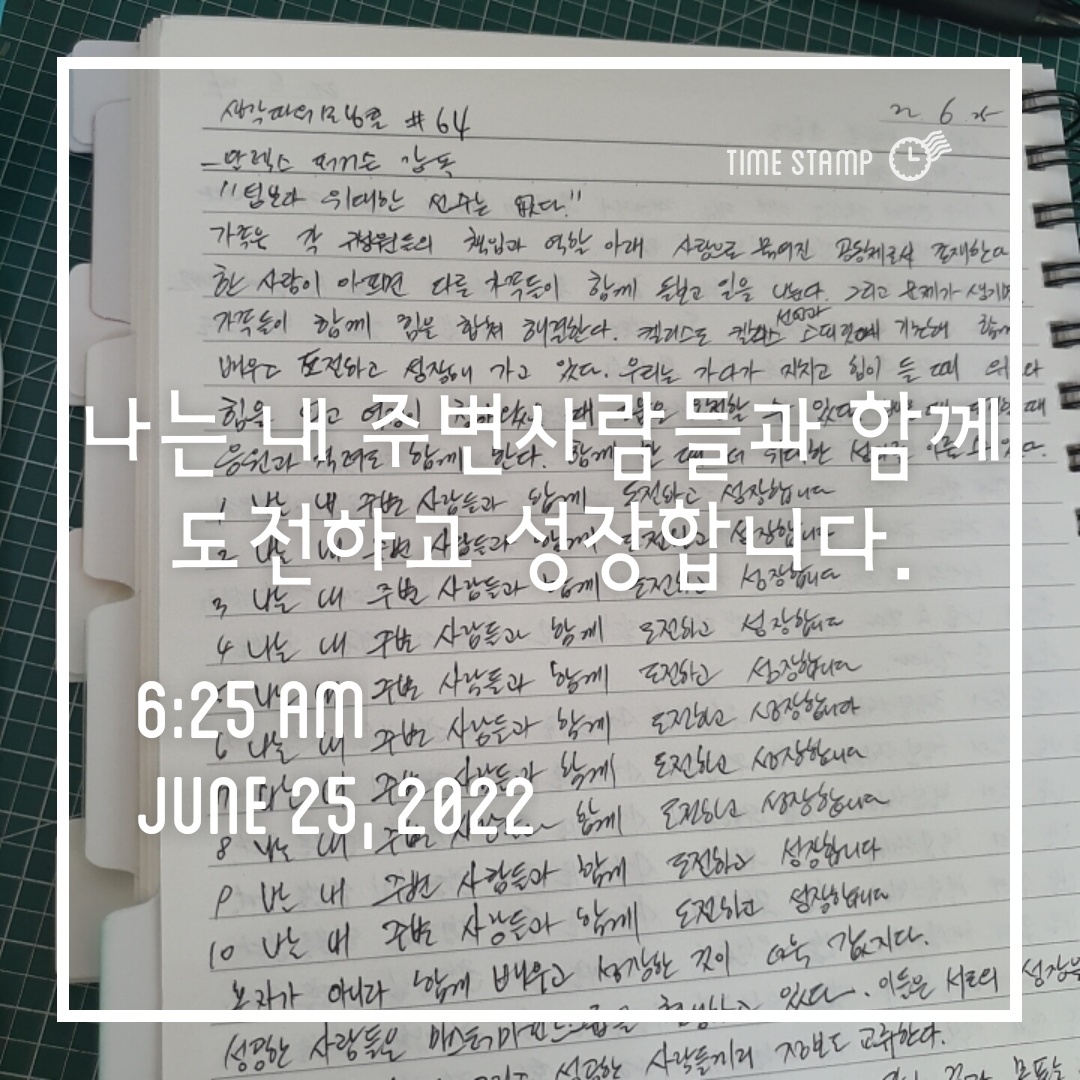 생각파워모닝콜 #64
22 6 25
TIME STAMP
- 알렉스 퍼거슨 감독
"팀보다 위대한 선수는 없다."
가족은 각 구성원들의 책임과 역할 아래 사랑으로 묶여진 공동체로서 존재한다
한 사람이 아프면 다른 가족들이 함께 돌보고 일을 나눈다. 그리고 문제가 생기면
가족들이 함께 힘을 합쳐 해결한다. 함께
배우고 도전하고 성장해 가고 있다. 우리는 가다가 지치고 힘이 들 때
나는 내 주변사람들과 함께
도전하고 성장합니다.
응원과 격려도 함께 한다. 함께
1 나는 내 주변 사람들과 함께 도전하고 성장합니다
2 나는 내 주변 사람들과 함께 도전하고 성장합니다
3 나는 내 주변 사람들과 함께 도전하고 성장합니다
4 나는 내 주변 사람들과 함께 도전하고 성장합니다
나는 내 주변 사람들과 함께 도전하고 성장합니다
6:25 AM
6 나는 내 주변 사람들과 함께 도전하고 성장합니다
7 나는 내 주변 사람들과 함께 도전하고 성장합니다
JUNE 25, 2022
8 나는 내 주변 사람들과 함께 도전하고 성장합니다
9 나는 내 주변 사람들과 함께 도전하고 성장합니다
10 나는 내 주변 사람들과 함께 도전하고 성장합니다
혼자가 아니라 함께 배우고 성장한 것이 더욱 값지다.
성공한 사람들은 있다. 이들은 서로의 성장을
성공한 사람들끼리 정보도 교류한다.